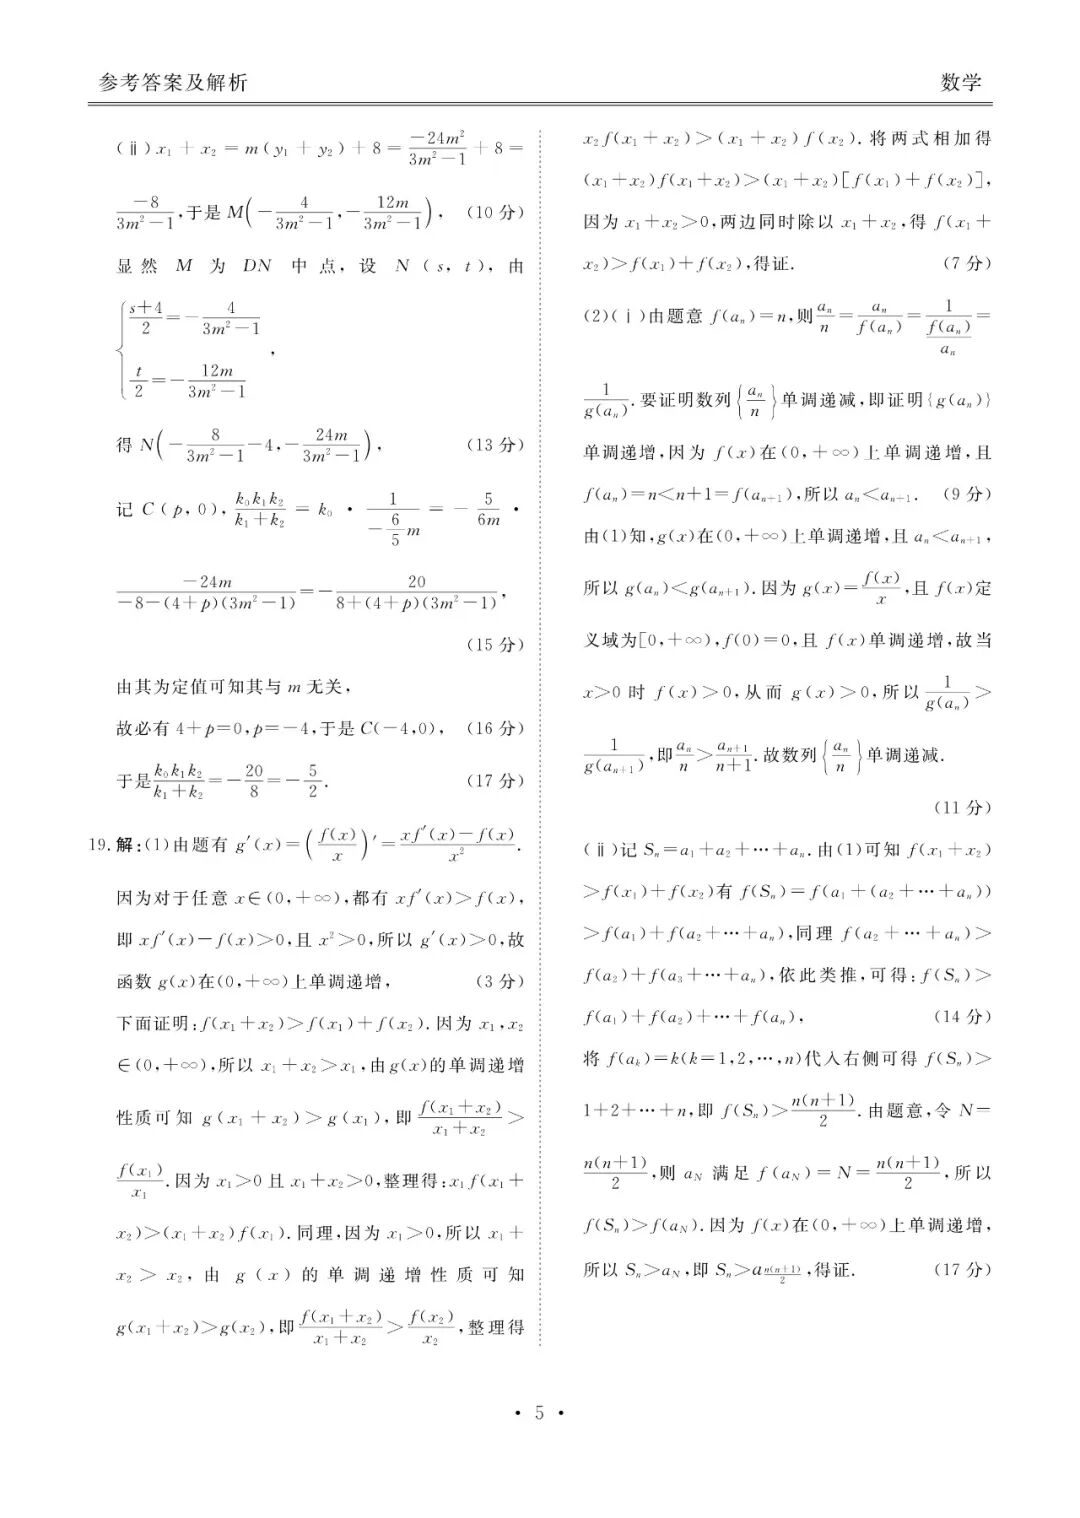 参考答案及解析 数学
(ⅱ)x₁+x₂=m(y₁+y₂)+8=\frac{-24m²}{3m²-1}+8=
\frac{-8}{3m²-1},于是 M(-\frac{4}{3m²-1},-\frac{12m}{3m²-1}), (10 分)
显然 M 为 DN 中点,设 N(s,t),由
{\frac{s+4}{2}=-\frac{4}{3m²-1}
\frac{t}{2}=-\frac{12m}{3m²-1},
得 N(-\frac{8}{3m²-1}-4,-\frac{24m}{3m²-1}), (13 分)
记 C(p,0),\frac{k₀k₁k₂}{k₁+k₂}=k₀·\frac{1}{-\frac{6}{5}m}=-\frac{5}{6m}·
\frac{-24m}{-8-(4+p)(3m²-1)}=-\frac{20}{8+(4+p)(3m²-1)},
(15 分)
由其为定值可知其与 m 无关,
故必有 4+p=0,p=-4,于是 C(-4,0), (16 分)
于是\frac{k₀k₁k₂}{k₁+k₂}=-\frac{20}{8}=-\frac{5}{2}. (17 分)
19.解:(1)由题有 g′(x)=(\frac{f(x)}{x})′=\frac{xf′(x)-f(x)}{x²}.
因为对于任意 x∈(0,+∞),都有 xf′(x)>f(x),
即 xf′(x)-f(x)>0,且 x²>0,所以 g′(x)>0,故
函数 g(x)在(0,+∞)上单调递增, (3 分)
下面证明:f(x₁+x₂)>f(x₁)+f(x₂).因为 x₁,x₂
∈(0,+∞),所以 x₁+x₂>x₁,由g(x)的单调递增
性质可知 g(x₁+x₂)>g(x₁),即\frac{f(x₁+x₂)}{x₁+x₂}>
\frac{f(x₁)}{x₁}.因为 x₁>0 且 x₁+x₂>0,整理得:x₁f(x₁+
x₂)>(x₁+x₂)f(x₁).同理,因为 x₁>0,所以 x₁+
x₂>x₂,由 g(x)的单调递增性质可知
g(x₁+x₂)>g(x₂),即\frac{f(x₁+x₂)}{x₁+x₂}>\frac{f(x₂)}{x₂},整理得
x₂f(x₁+x₂)>(x₁+x₂)f(x₂).将两式相加得
(x₁+x₂)f(x₁+x₂)>(x₁+x₂)[f(x₁)+f(x₂)],
因为 x₁+x₂>0,两边同时除以 x₁+x₂,得 f(x₁+
x₂)>f(x₁)+f(x₂),得证. (7 分)
(2)(ⅰ)由题意 f(aₙ)=n,则\frac{aₙ}{n}=\frac{aₙ}{f(aₙ)}=\frac{1}{\frac{f(aₙ)}{aₙ}}=
\frac{1}{g(aₙ)}.要证明数列{\frac{aₙ}{n}}单调递减,即证明{g(aₙ)}
单调递增,因为 f(x)在(0,+∞)上单调递增,且
f(aₙ)=n<n+1=f(aₙ₊₁),所以 aₙ<aₙ₊₁. (9 分)
由(1)知,g(x)在(0,+∞)上单调递增,且 aₙ<aₙ₊₁,
所以 g(aₙ)<g(aₙ₊₁).因为 g(x)=\frac{f(x)}{x},且 f(x)定
义域为[0,+∞),f(0)=0,且 f(x)单调递增,故当
x>0 时 f(x)>0,从而 g(x)>0,所以\frac{1}{g(aₙ)}>
\frac{1}{g(aₙ₊₁)},即\frac{aₙ}{n}>\frac{aₙ₊₁}{n+1}.故数列{\frac{aₙ}{n}}单调递减.
(11 分)
(ⅱ)记 Sₙ=a₁+a₂+⋯+aₙ.由(1)可知 f(x₁+x₂)
>f(x₁)+f(x₂)有 f(Sₙ)=f(a₁+(a₂+⋯+aₙ))
>f(a₁)+f(a₂+⋯+aₙ),同理 f(a₂+⋯+aₙ)>
f(a₂)+f(a₃+⋯+aₙ),依此类推,可得:f(Sₙ)>
f(a₁)+f(a₂)+⋯+f(aₙ), (14 分)
将 f(aₖ)=k(k=1,2,⋯,n)代入右侧可得 f(Sₙ)>
1+2+⋯+n,即 f(Sₙ)>\frac{n(n+1)}{2}.由题意,令 N=
\frac{n(n+1)}{2},则 a_N 满足 f(a_N)=N=\frac{n(n+1)}{2},所以
f(Sₙ)>f(a_N).因为 f(x)在(0,+∞)上单调递增,
所以 Sₙ>a_N,即 Sₙ>a_{\frac{n(n+1)}{2}},得证. (17 分)
· 5 ·